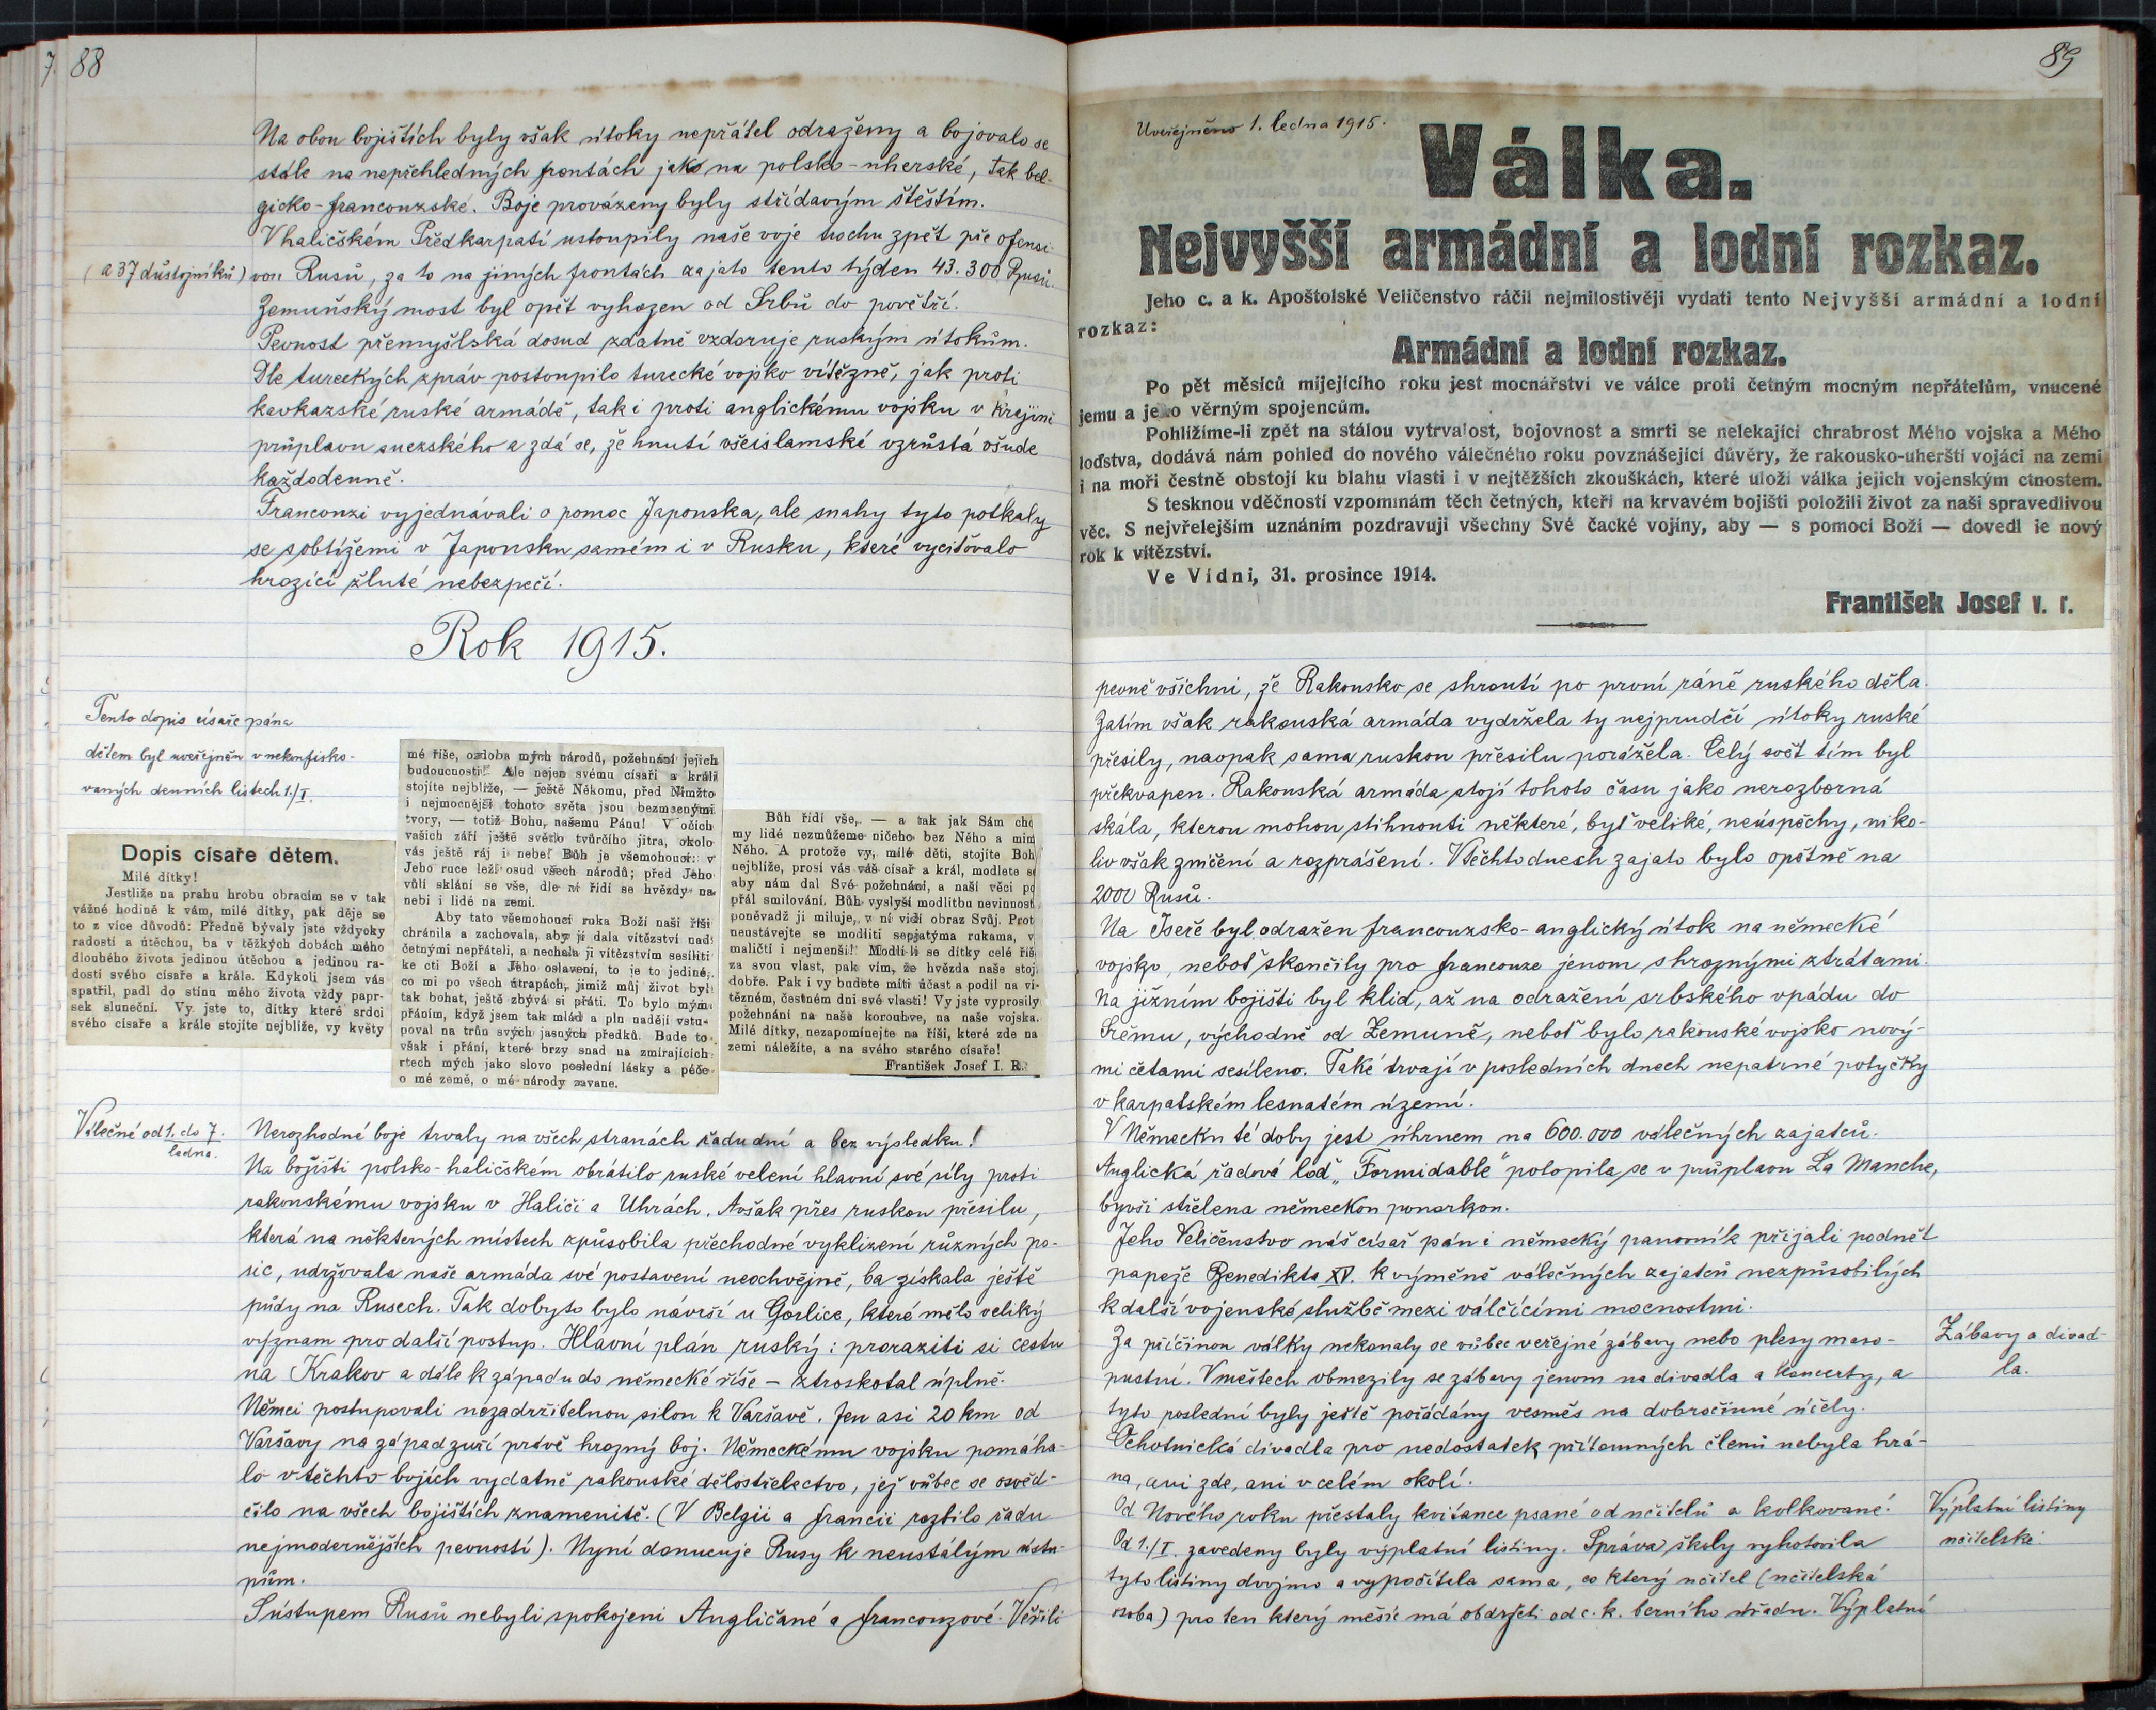 88
Na obou bojištích byly však útoky nepřátel odraženy a bojovalo se
stále na nepřehledných frontách jako na polsko-uherské, tak bel-
gicko-francouzské. Boje provázeny byly střídavým štěstím.
V haličském Předkarpatí ustoupily naše voje trochu zpět pře ofensi-
(a 37 důstojníků) vou Rusů, za to na jiných frontách zajato tento týden 43.300 Rusů.
Zemuňský most byl opět vyhozen od Srbů do povětří.
Pevnost přemyšlská dosud zdatně vzdoruje ruským útokům.
Dle tureckých zpráv postoupilo turecké vojsko vítězně, jak proti
kavkazské ruské armádě, tak i proti anglickému vojsku v krajině
průplavu suezského a zdá se, že hnutí všeislamské vzrůstá všude
každodenně.
Francouzi vyjednávali o pomoc Japonska, ale snahy tyto potkaly
se s obtížemi v Japonsku samém i v Rusku, které vyciťovalo
hrozící žluté nebezpečí.
Rok 1915.
Tento dopis císaře pána
dětem byl uveřejněn v nekonfisko-
vaných denních listech 1./I.
Dopis císaře dětem.
Milé dítky!
Jestliže na prahu hrobu obracím se v tak
vážné hodině k vám, milé dítky, pak děje se
to z více důvodů: Předně bývaly jste vždycky
radostí a útěchou, ba v těžkých dobách mého
dlouhého života jedinou útěchou a jedinou ra-
dostí svého císaře a krále. Kdykoli jsem vás
spatřil, padl do stínu mého života vždy papr-
sek sluneční. Vy jste to, dítky které srdci
svého císaře a krále stojíte nejblíže, vy květy
mé říše, ozdoba mých národů, požehnání jejich
budoucnosti! Ale nejen svému císaři a králi
stojíte nejblíže, — ještě Někomu, před Nímžto
i nejmocnější tohoto světa jsou bezmocnými
tvory, — totiž Bohu, našemu Pánu! V očích
vašich září ještě světlo tvůrčího jitra, okolo
vás ještě ráj i nebe! Bůh je všemohoucí: v
Jeho ruce leží osud všech národů; před Jeho
vůlí sklání se vše, dle ní řídí se hvězdy na
nebi i lidé na zemi.
Aby tato všemohoucí ruka Boží naši říši
chránila a zachovala, aby jí dala vítězství nad
četnými nepřáteli, a nechala ji vítězstvím sesíliti
ke cti Boží a Jeho oslavení, to je to jediné,
co mi po všech útrapách, jimiž můj život byl
tak bohat, ještě zbývá si přáti. To bylo mým
přáním, když jsem tak mlád a pln nadějí vstu-
poval na trůn svých jasných předků. Bude to
však i přání, které brzy snad na zmírajících
rtech mých jako slovo poslední lásky a péče
o mé země, o mé národy zavane.
Bůh řídí vše, — a tak jak Sám chc
my lidé nezmůžeme ničeho bez Něho a mim
Něho. A protože vy, milé děti, stojíte Boh
nejblíže, prosí vás váš císař a král, modlete se
aby nám dal Své požehnání, a naší věci po
přál smilování. Bůh vyslyší modlitbu nevinnost
poněvadž ji miluje, v ní vidí obraz Svůj. Prot
neustávejte se modliti sepjatýma rukama, v
maličtí i nejmenší! Modlí-li se dítky celé říš
za svou vlast, pak vím, že hvězda naše stoj
dobře. Pak i vy budete míti účast a podíl na ví-
tězném, čestném dni své vlasti! Vy jste vyprosily
požehnání na naše korouhve, na naše vojska.
Milé dítky, nezapomínejte na říši, které zde na
zemi náležíte, a na svého starého císaře!
František Josef I. R.
Válečné od 1. do 7.
ledna.
Nerozhodné boje trvaly na všech stranách řadu dní a bez výsledku!
Na bojišti polsko-haličském obrátilo ruské velení hlavní své síly proti
rakouskému vojsku v Haliči a Uhrách. Avšak přes ruskou přesilu,
která na některých místech způsobila přechodné vyklizení různých po-
sic, udržovala naše armáda své postavení neochvějně, ba získala ještě
půdy na Rusech. Tak dobyto bylo návrší u Gorlice, které mělo veliký
význam pro další postup. Hlavní plán ruský: proraziti si cestu
na Krakov a dále k západu do německé říše – ztroskotal úplně.
Němci postupovali nezadržitelnou silou k Varšavě. Jen asi 20 km od
Varšavy na západ zuří právě hrozný boj. Německému vojsku pomáha-
lo v těchto bojích vydatně rakouské dělostřelectvo, jež vůbec se osvěd-
čilo na všech bojištích znamenitě. (V Belgii a Francii rozbilo řadu
nejmodernějších pevností). Nyní donucuje Rusy k neustálým ústu-
pům.
S ústupem Rusů nebyli spokojeni Angličané a Francouzové. Věřili
89
Uveřejněno 1. ledna 1915.
Válka.
Nejvyšší armádní a lodní rozkaz.
Jeho c. a k. Apoštolské Veličenstvo ráčil nejmilostivěji vydati tento Nejvyšší armádní a lodní
rozkaz:
Armádní a lodní rozkaz.
Po pět měsíců míjejícího roku jest mocnářství ve válce proti četným mocným nepřátelům, vnucené
jemu a jeho věrným spojencům.
Pohlížíme-li zpět na stálou vytrvalost, bojovnost a smrti se nelekající chrabrost Mého vojska a Mého
loďstva, dodává nám pohled do nového válečného roku povznášející důvěry, že rakousko-uherští vojáci na zemi
i na moři čestně obstojí ku blahu vlasti i v nejtěžších zkouškách, které uloží válka jejich vojenským ctnostem.
S tesknou vděčností vzpomínám těch četných, kteří na krvavém bojišti položili život za naši spravedlivou
věc. S nejvřelejším uznáním pozdravuji všechny Své čacké vojíny, aby — s pomocí Boží — dovedl je nový
rok k vítězství.
Ve Vídni, 31. prosince 1914.
František Josef v. r.
pevně všichni, že Rakousko se shroutí po první ráně ruského děla.
Zatím však rakouská armáda vydržela ty nejprudčí útoky ruské
přesily, naopak sama ruskou přesilu porážela. Celý svět tím byl
překvapen. Rakouská armáda stojí tohoto času jako nerozborná
skála, kterou mohou stihnouti některé, byť veliké, neúspěchy, niko-
liv však zničení a rozprášení. V těchto dnech zajato bylo opětně na
2000 Rusů.
Na Iseře byl odražen francouzsko-anglický útok na německé
vojsko, neboť skončily pro francouze jenom s hroznými ztrátami.
Na jižním bojišti byl klid, až na odražení srbského vpádu do
Srěmu, východně od Zemuně, neboť bylo rakouské vojsko nový-
mi četami sesíleno. Také trvají v posledních dnech nepatrné potyčky
v karpatském lesnatém území.
V Německu té doby jest úhrnem na 600.000 válečných zajatců.
Anglická řadová loď „Formidable" potopila se v průplavu La Manche,
byvši střelena německou ponorkou.
Jeho Veličenstvo náš císař pán i německý panovník přijali podnět
papeže Benedikta XV. k výměně válečných zajatců nezpůsobilých
k další vojenské službě mezi válčícími mocnostmi.
Za příčinou války nekonaly se vůbec veřejné zábavy nebo plesy maso-
pustní. V městech obmezily se zábavy jenom na divadla a koncerty, a
tyto poslední byly ještě pořádány vesměs na dobročinné účely.
Ochotnická divadla pro nedostatek přítomných členů nebyla hrá-
na, ani zde, ani v celém okolí.
Zábavy a divad-
la.
Od Nového roku přestaly kvitance psané od učitelů a kolkované.
Od 1./I. zavedeny byly výplatní listiny. Správa školy vyhotovila
tyto listiny dvojmo a vypočítala sama, co který učitel (učitelská
osoba) pro ten který měsíc má obdržeti od c. k. berního úřadu. Výplatní
Výplatní listiny
učitelské.